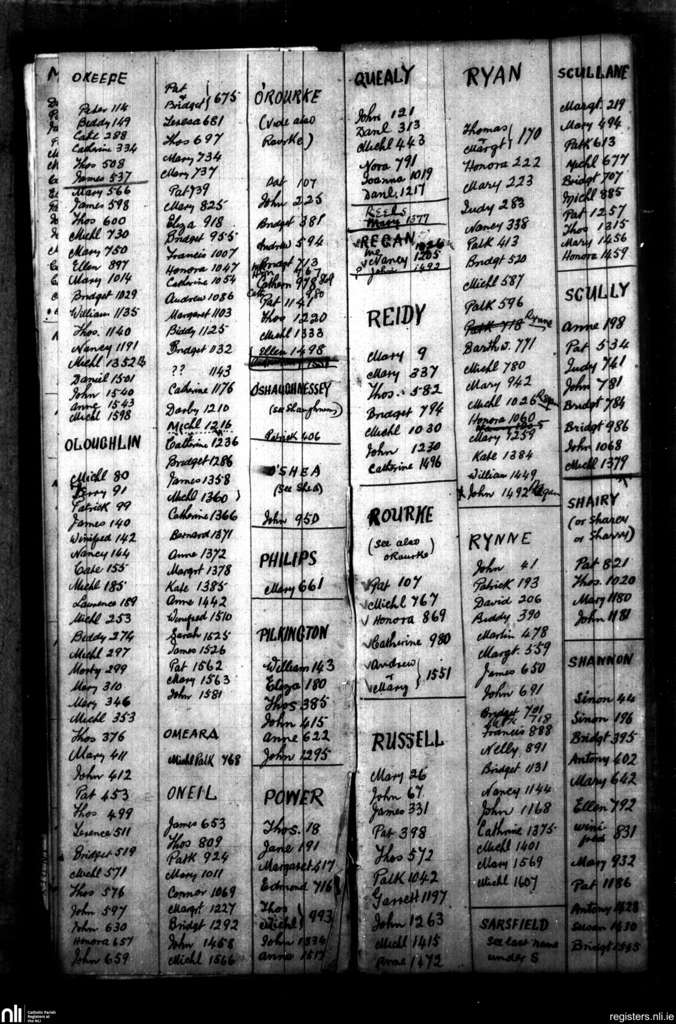 OKEEFE
Peter 114
Biddy 149
Cate 288
Cathrine 334
Thos 508
James 537
Mary 566
James 598
Thos 600
Michl 730
Mary 750
Ellen 897
Mary 1014
Bridget 1029
William 1135
Thos. 1140
Nancy 1191
Michl 1352
Daniel 1501
John 1540
Anne 1543
Michl 1598
OLOUGHLIN
Michl 80
91
Patrick 99
James 140
Winifred 142
Nancy 144
Cate 155
Michl 185
Laurence 189
Michl 253
Biddy 274
Michl 297
Morty 299
Mary 310
Mary 346
Michl 353
Thos 376
Mary 411
John 412
Pat 453
Thos 499
Terence 511
Bridget 519
Michl 571
Thos 576
John 597
John 630
Honora 657
John 659
Pat
Bridget 675
Teresa 681
Thos 697
Mary 734
Mary 737
Pat 739
Mary 825
Eliza 918
Bridget 955
Francis 1007
Honora 1047
Cathrine 1054
Andrew 1086
Margaret 1103
Biddy 1125
Bridget 1132
?? 1143
Catherine 1176
Darby 1210
Michl 1216
Cathrine 1236
Bridget 1286
James 1358
Michl 1360
Catherine 1366
Bernard 1371
Anne 1372
Margrt 1378
Kate 1385
Anne 1442
Winifred 1510
Sarah 1525
James 1526
Pat 1562
Mary 1563
John 1581
OMEARA
Michl Patk 768
ONEIL
James 653
Thos 809
Patk 924
Mary 1011
Connor 1069
Margrt 1227
Bridgt 1292
John 1458
Michl 1566
O'ROURKE
(Vide also
Rourke)
Pat 107
John 225
Bridget 381
Andrew 594
Bridgt 713
767
Cathern 978
Pat 1141
Thos 1220
Michl 1333
Ellen 1498
OSHAUGHNESSEY
(see Shaughnessy)
Patrick 406
O'SHEA
(See Shea)
John 950
PHILIPS
Mary 661
PILKINGTON
William 143
Eliza 180
Thos 385
John 415
Anne 622
John 1295
POWER
Thos. 18
Jane 191
Margaret 417
Edmond 716
Thos
Michl 993
John 1336
Anne 1517
QUEALY
John 121
Danl 313
Michl 443
Nora 791
Joanna 1019
Danl. 1217
REELS
Mary 1377
REGAN
Nancy 1205
John 1492
REIDY
Mary 9
Mary 337
Thos. 582
Bridget 794
Michl 1030
John 1230
Catherine 1496
ROURKE
(see also
ORourke)
Pat 107
Michl 767
Honora 869
Catherine 980
Andrew
Mary 1551
RUSSELL
Mary 26
John 67
James 331
Pat 398
Thos 572
Patk 1042
Garrett 1197
John 1263
Michl 1415
Anne 1472
RYAN
Thomas
Margt 170
Honora 222
Mary 223
Judy 283
Nancy 338
Patk 413
Bridgt 520
Michl 587
Patk 596
Patk 718 Rynne
Barthw. 771
Michl 780
Mary 942
Michl 1026 Regan
Honora 1060
Mary 1259
Kate 1384
William 1449
x John 1492 Regan
RYNNE
John 41
Patrick 193
David 206
Biddy 390
Martin 478
Margt. 559
James 650
John 691
Bridgt 701
Patk 718
Francis 888
Nelly 891
Bridget 1131
Nancy 1144
John 1168
Cathrine 1375
Michl 1401
Mary 1569
Michl 1607
SARSFIELD
See last name
under S
SCULLANE
Margt. 219
Mary 494
Patk 613
Michl 677
Bridgt 707
Michl 885
Pat 1257
Thos 1315
Mary 1456
Honora 1459
SCULLY
Anne 198
Pat 534
Judy 761
John 781
Bridgt 784
Bridgt 986
John 1068
Michl 1379
SHAIRY
(or Sharey
or Sharry)
Pat 821
Thos. 1020
Mary 1180
John 1181
SHANNON
Simon 44
Simon 196
Bridgt 395
Antony 402
Mary 642
Ellen 792
Wini-
fred 831
Mary 932
Pat 1186
Antony 1428
Susan 1430
Bridgt 1545
nli
Catholic Parish
Registers at
the NLI
registers.nli.ie